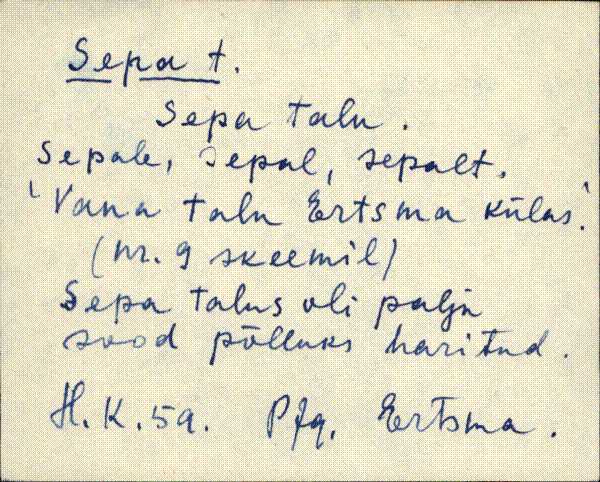 Sepa t.
Sepa talu.
Sepale, sepal, sepalt.
'Vana talu Ertsma külas.'
(nr. 9 skeemil)
Sepa talus oli palju
sood põlluks haritud.
H. K. 59. Pfg. Ertsma.